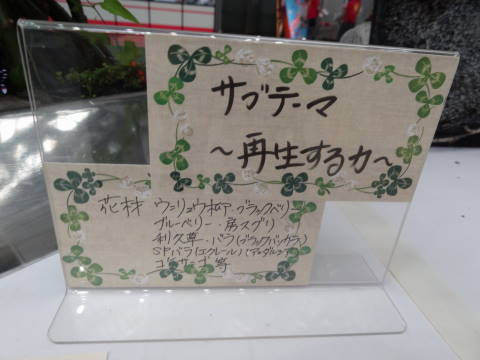 サブテーマ
～再生する力～
花材 ウンリュウ柳・ブラックベリー
ブルーベリー・房スグリ
利久草・バラ(ブラックバッカラ)
SPバラ(エクレール)
等